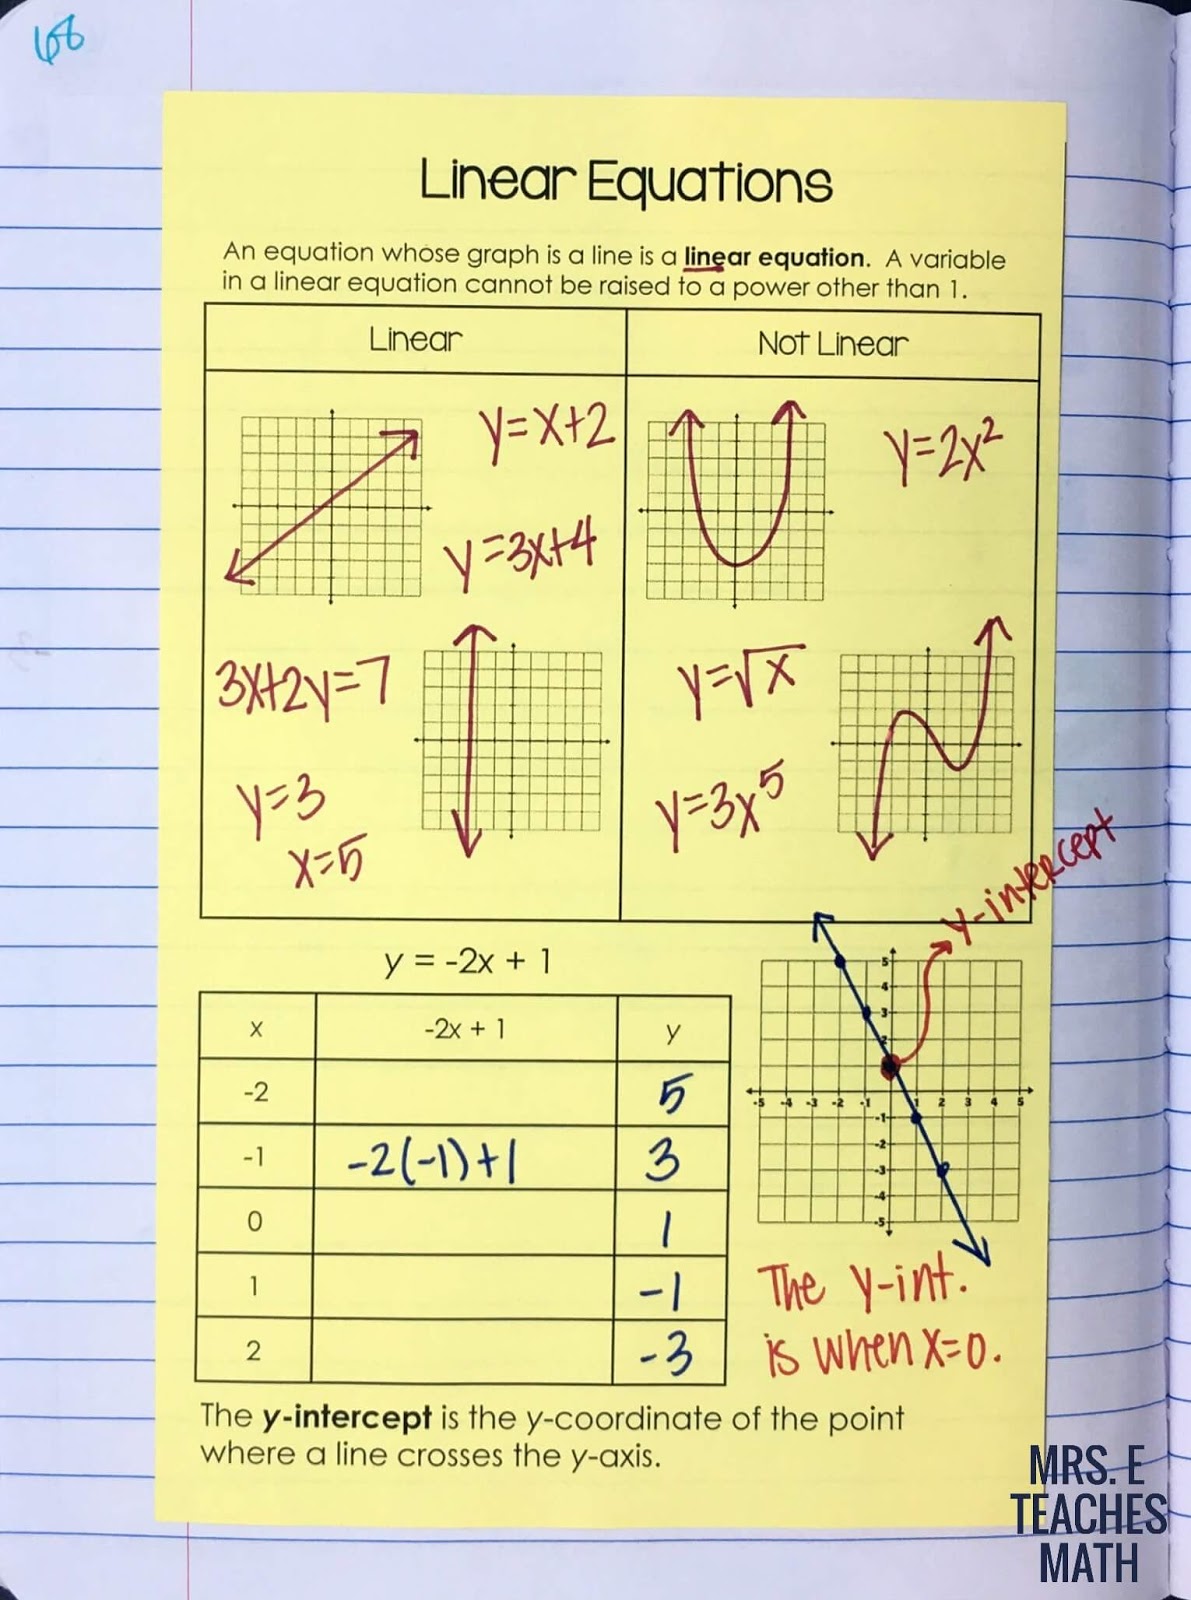 68
Linear Equations
An equation whose graph is a line is a linear equation. A variable
in a linear equation cannot be raised to a power other than 1.
Linear
Not Linear
y=x+2
y=3x+4
3x+2y=7
y=3
x=5
y=2x²
y=√x
y=3x⁵
y-intercept
y = -2x + 1
x -2x + 1 y
-2 5
-1 -2(-1)+1 3
0 1
1 -1
2 -3
5
4
3
2
-5 -4 -3 -2 -1 1 2 3 4 5
-1
-2
-3
-4
-5
The y-int.
is when x=0.
The y-intercept is the y-coordinate of the point
where a line crosses the y-axis.
MRS. E
TEACHES
MATH